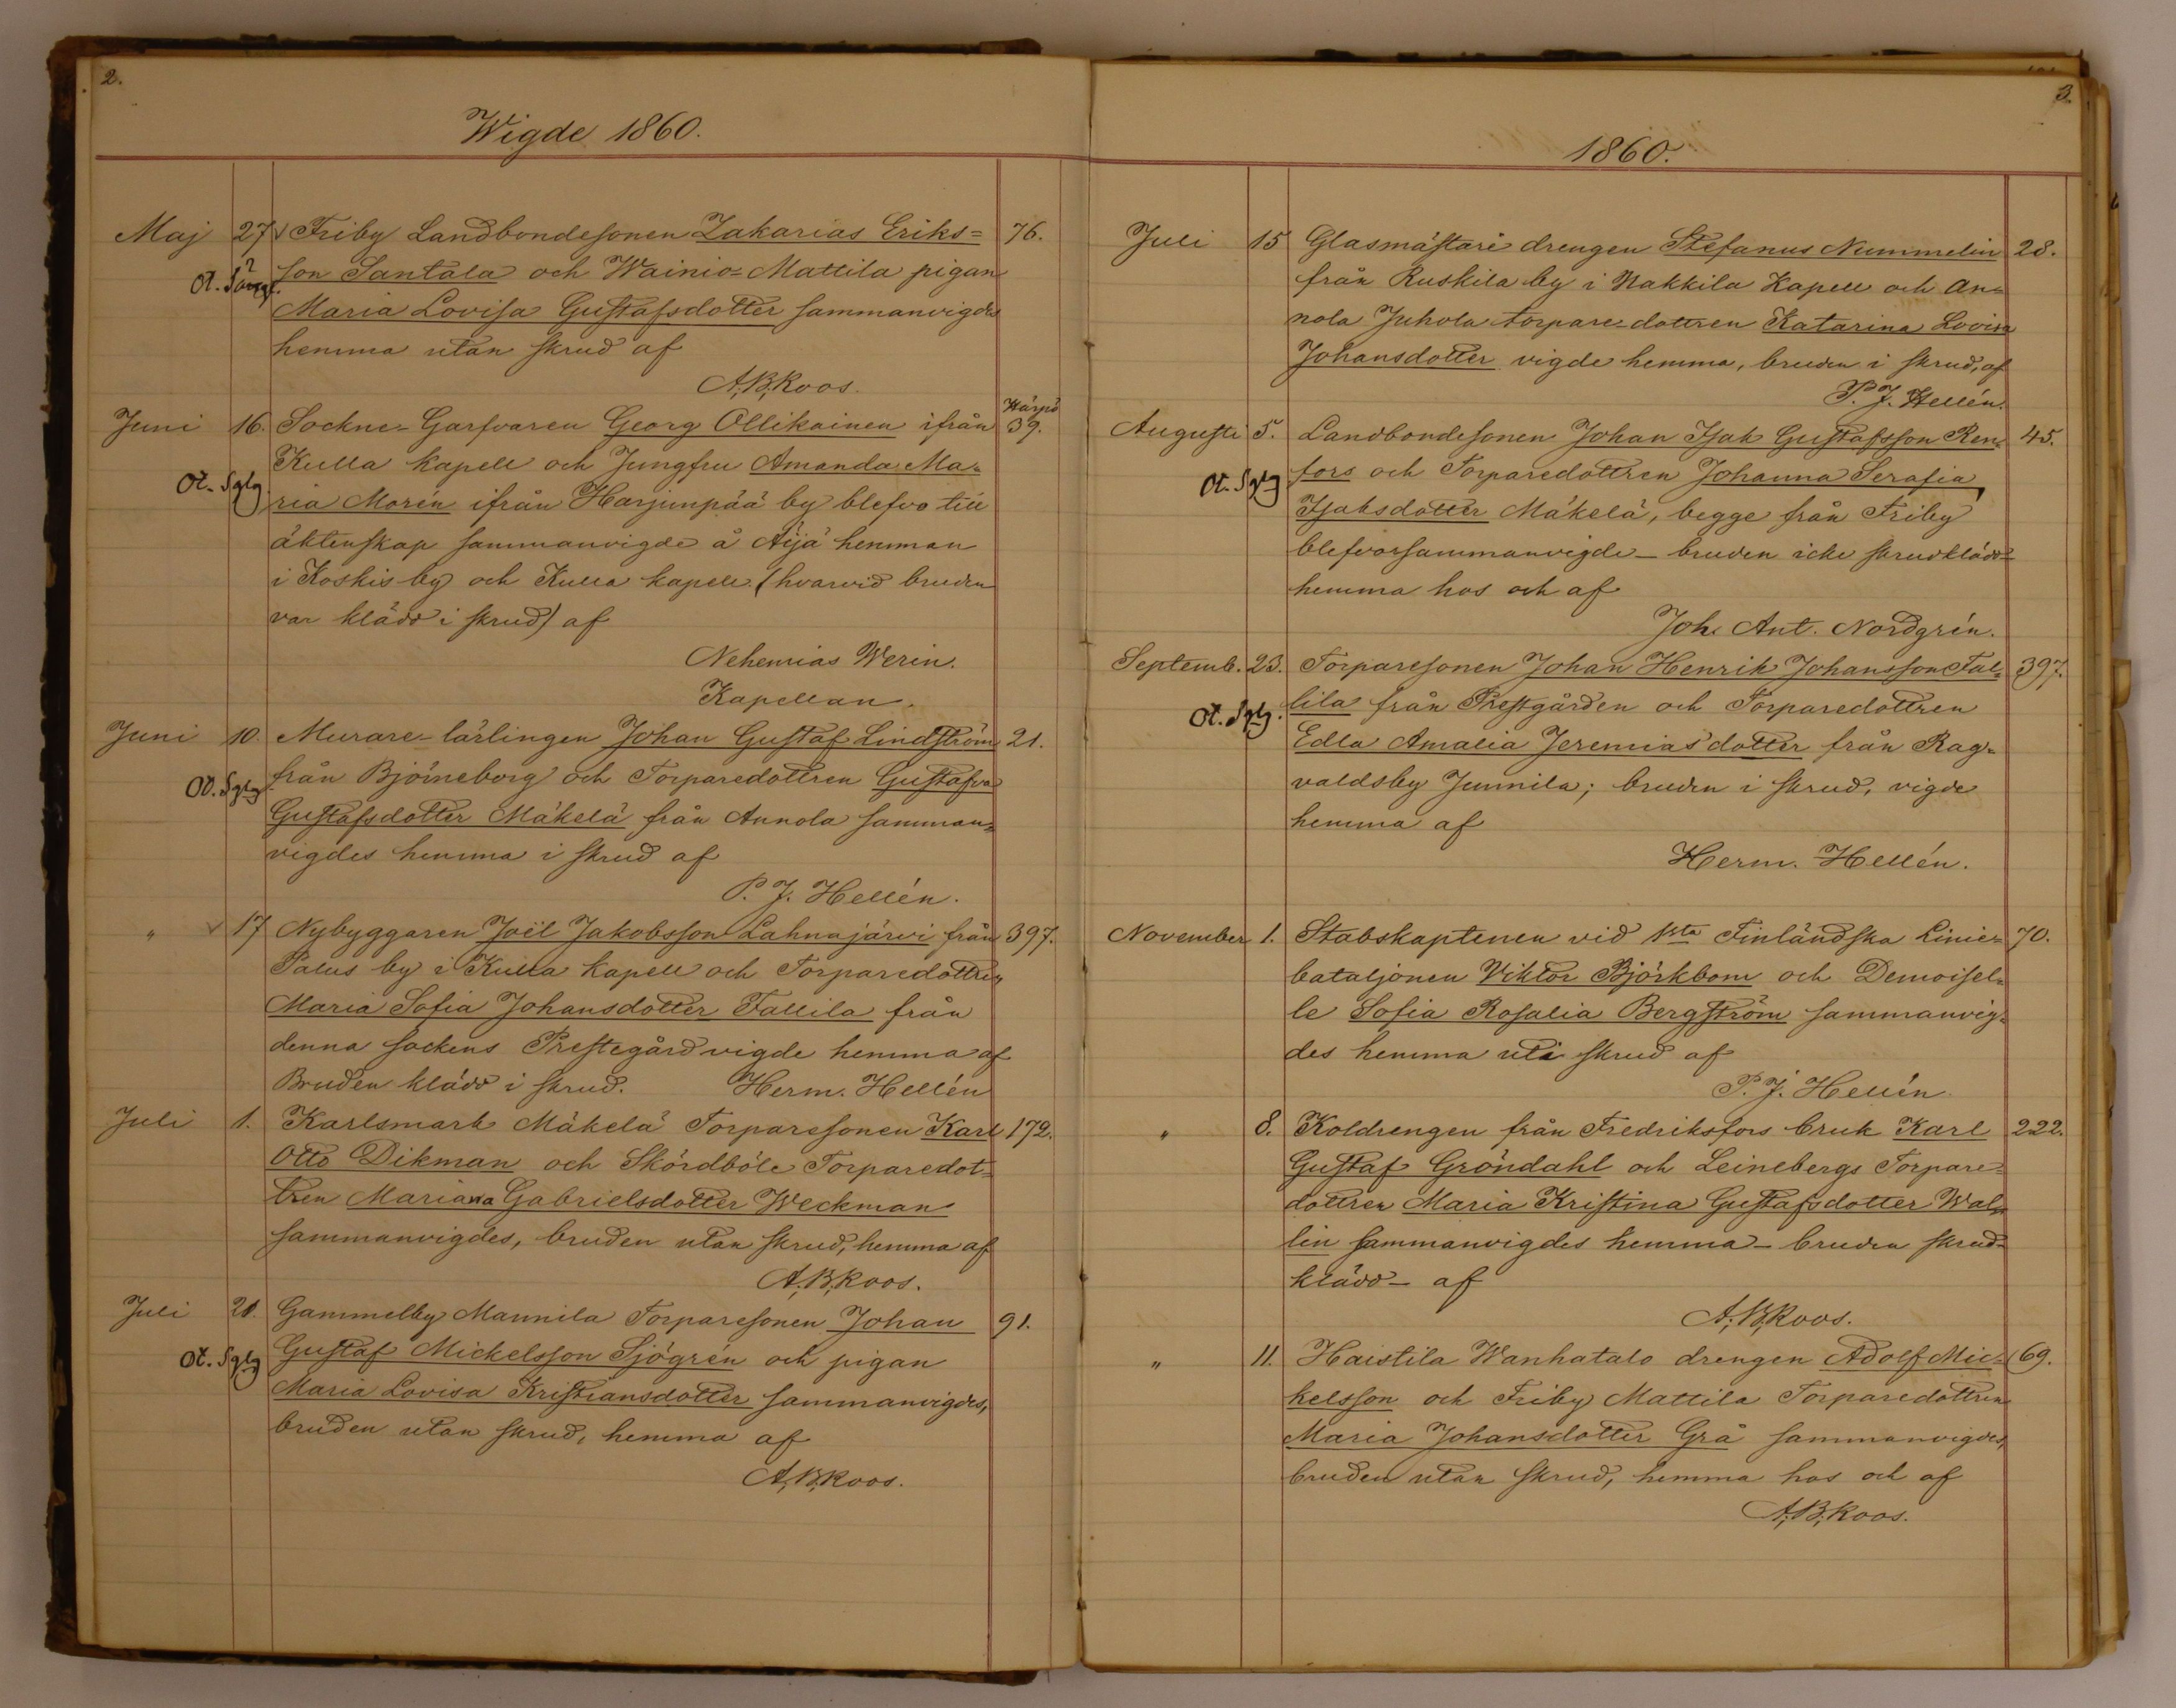 2.
Wigde 1860.
Maj 27 Friby Landbondesonen Zakarias Eriks= 76.
son Santala och Wainio=Mattila pigan
Maria Lovisa Gustafsdotter sammanvigdes
hemma utan skrud af
A. B. Roos.
Juni 16. Sockne=Garfvaren Georg Ollikainen ifrån 39.
Kulla kapell och Jungfru Amanda Ma=
Ot. Sglg
ria Morén ifrån Harjunpää by blefvo till
äktenskap sammanvigde å Äijä hemman
i Koskis by och Kulla kapell (hvarvid bruden
var klädd i skrud) af
Nehemias Werin.
Kapellan.
Juni 10. Murare=lärlingen Johan Gustaf Lindström 21.
från Björneborg och Torparedottren Gustafva
Ot. Sglg
Gustafsdotter Mäkelä från Annola samman=
vigdes hemma i skrud af
P. J. Hellén.
" 17 Nybyggaren Joël Jakobsson Lahnajärvi från 397.
Palus by i Kulla kapell och Torparedottren
Maria Sofia Johansdotter Tallila från
denna sockens Prestegård vigde hemma af
Bruden klädd i skrud. Herm. Hellén
Juli 1. Karlsmark Mäkelä Torparesonen Karl 172.
Otto Dikman och Skördböle Torparedot=
tren Mariana Gabrielsdotter Weckman
sammanvigdes, bruden utan skrud, hemma af
A. B. Roos.
Juli 21. Gammelby Mannila Torparesonen Johan 91.
Gustaf Mickelsson Sjögrén och pigan
Ot. Sglg
Maria Lovisa Kristiansdotter sammanvigdes,
bruden utan skrud, hemma af
A. B. Roos.
3.
1860.
Juli 15 Glasmästare drengen Stefanus Nummelin 28.
från Ruskila by i Nakkila Kapell och An=
nola Juhola torpare=dottren Katarina Lovisa
Johansdotter vigde hemma, bruden i skrud, af
P. J. Hellén.
Augusti 5. Landbondesonen Johan Isak Gustafsson Ren= 45.
fors och Torparedottren Johanna Serafia
Ot. Sglg
Isaksdotter Mäkelä, begge från Friby
blefvo sammanvigde – bruden icke skrudklädd –
hemma hos och af
Joh. Ant. Nordgrén.
Septemb. 23. Torparesonen Johan Henrik Johansson Tal= 397.
lila från Prestgården och Torparedottren
Ot. Sglg.
Edla Amalia Jeremiasdotter från Rag=
valdsby Junnila; bruden i skrud, vigde
hemma af
Herm. Hellén.
November 1. Stabskaptenen vid 1sta Finländska Linie= 70.
bataljonen Viktor Björkbom och Demoisel=
le Sofia Rosalia Bergström sammanvig=
des hemma uti skrud af
P. J. Hellén
" 8. Koldrengen från Fredriksfors bruk Karl 222.
Gustaf Gröndahl och Leinebergs Torpare=
dottren Maria Kristina Gustafsdotter Wal=
lin sammanvigdes hemma – bruden skrud=
klädd – af
A. B. Roos.
" 11. Haistila Wanhatalo drengen Adolf Mic= 69.
kelsson och Friby Mattila Torparedottren
Maria Johansdotter Grå sammanvigdes,
bruden utan skrud, hemma hos och af
A. B. Roos.